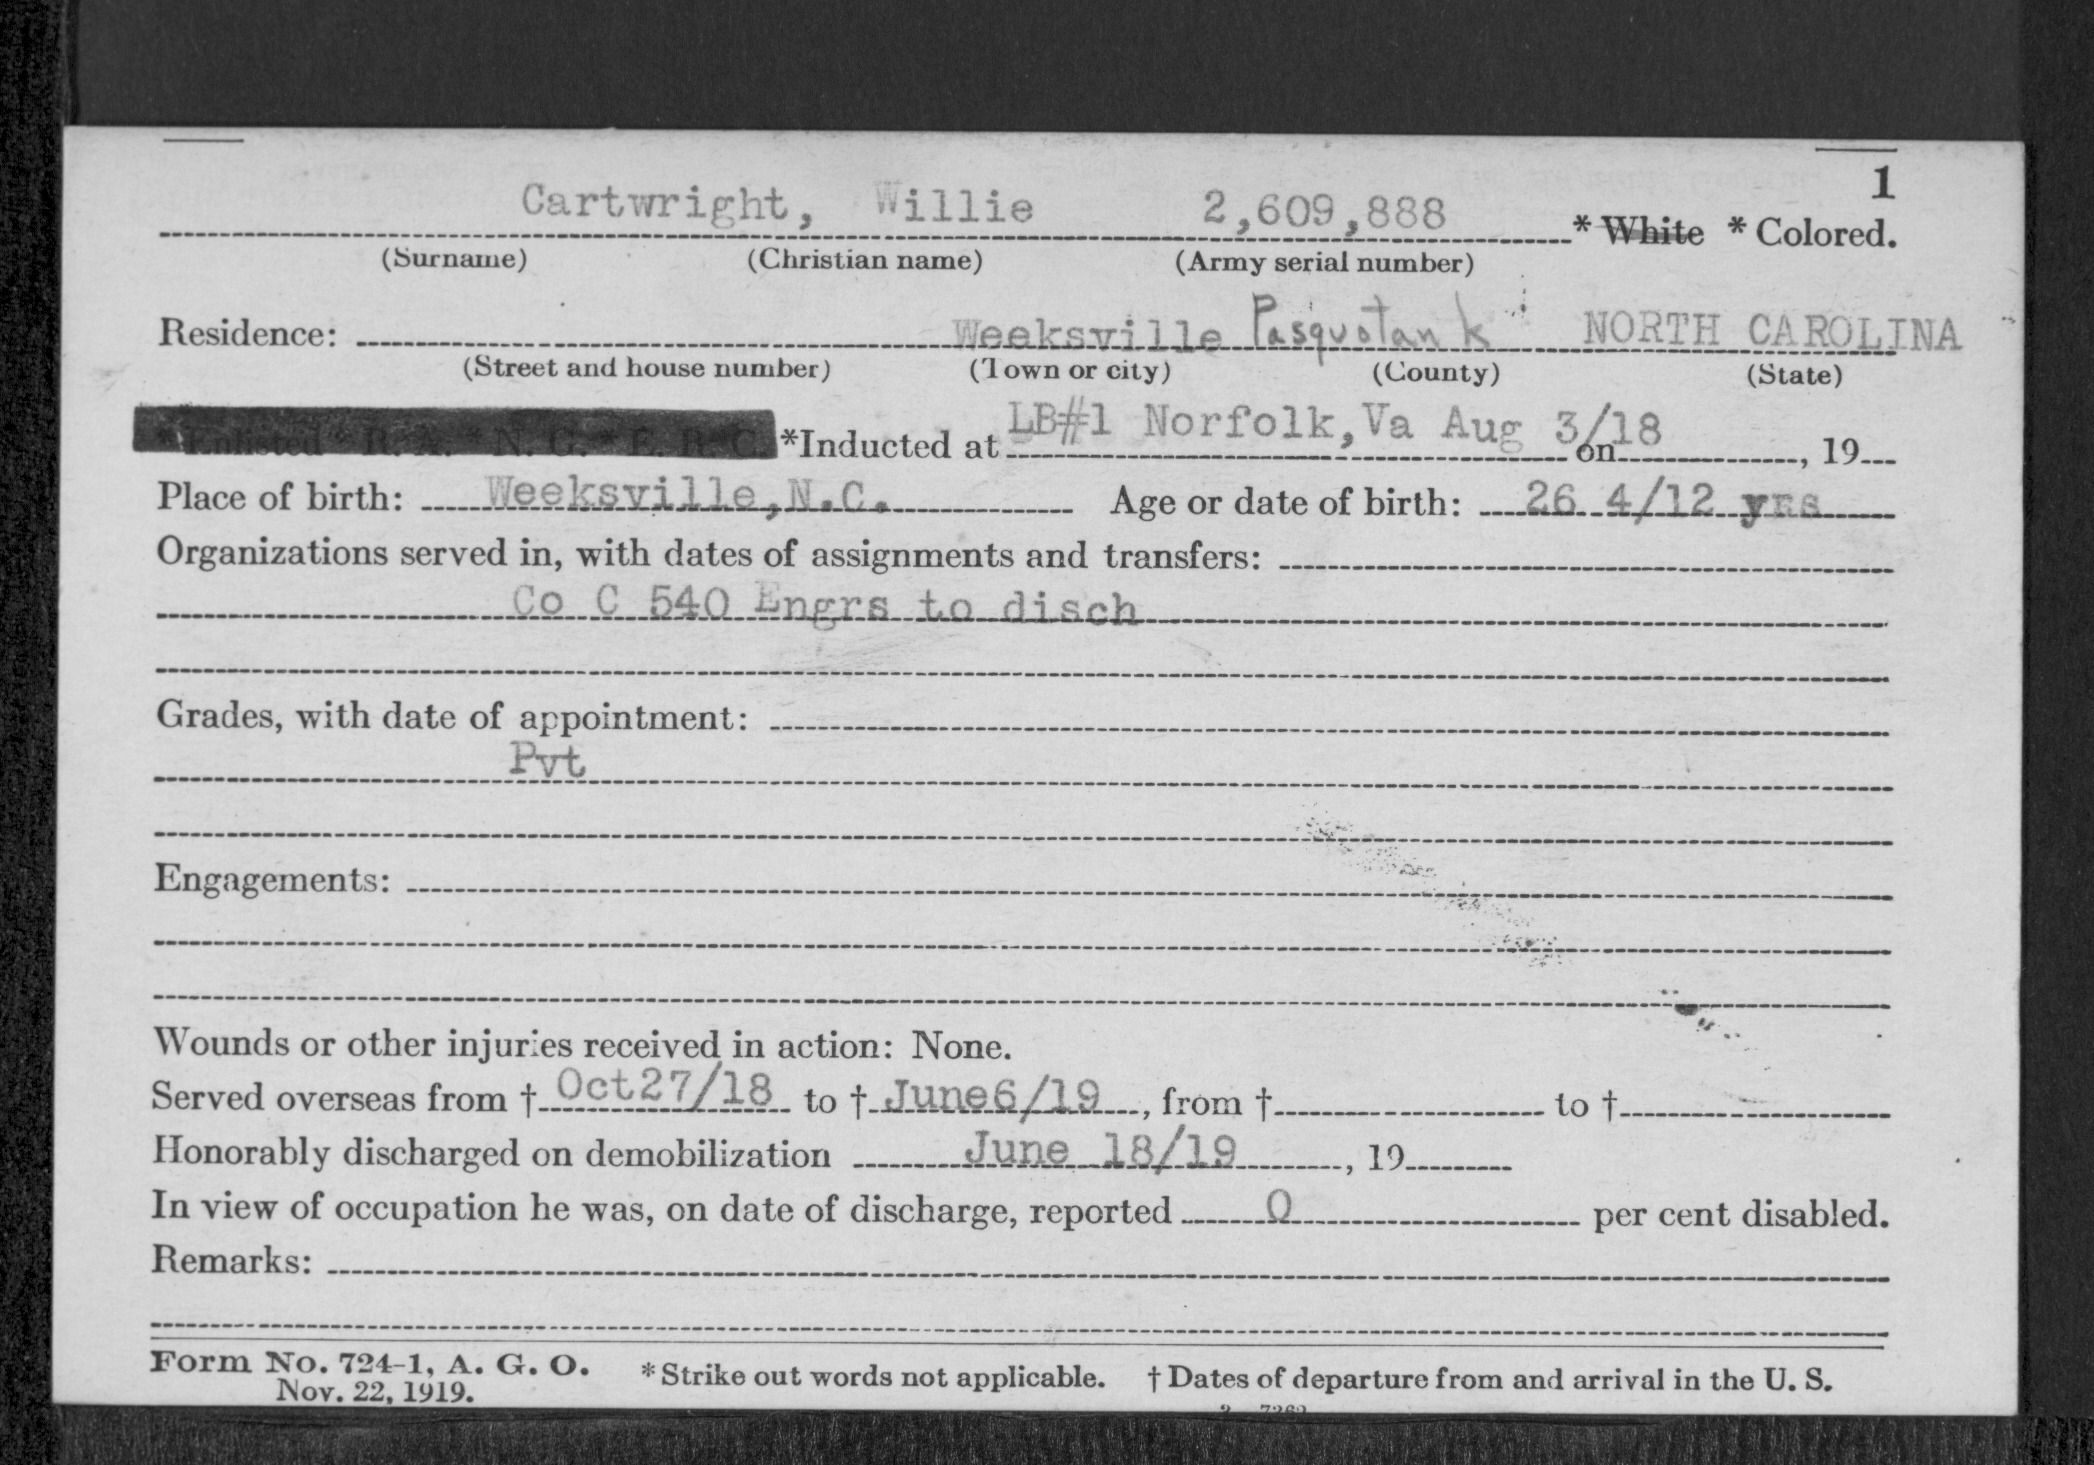 1
Cartwright, Willie 2,609,888 * White * Colored.
(Surname) (Christian name) (Army serial number)
Residence: Weeksville Pasquotank NORTH CAROLINA
(Street and house number) (Town or city) (County) (State)
* Enlisted * R. A. * N. G. * E. R. C. *Inducted at LB#1 Norfolk,Va Aug 3/18 on , 19
Place of birth: Weeksville,N.C. Age or date of birth: 26 4/12 yrs
Organizations served in, with dates of assignments and transfers:
Co C 540 Engrs to disch
Grades, with date of appointment:
Pvt
Engagements:
Wounds or other injuries received in action: None.
Served overseas from † Oct27/18 to † June6/19 , from † to †
Honorably discharged on demobilization June 18/19 , 19
In view of occupation he was, on date of discharge, reported 0 per cent disabled.
Remarks:
Form No. 724-1, A. G. O. * Strike out words not applicable. † Dates of departure from and arrival in the U. S.
Nov. 22, 1919.